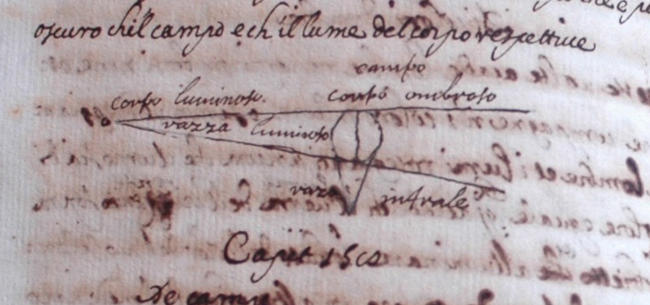 oscuro ch'il campo e ch'il lume del corpo respettive
campo
corpo luminoso. corpo ombroso
razza luminoso
razo intrale
Capit
De campi